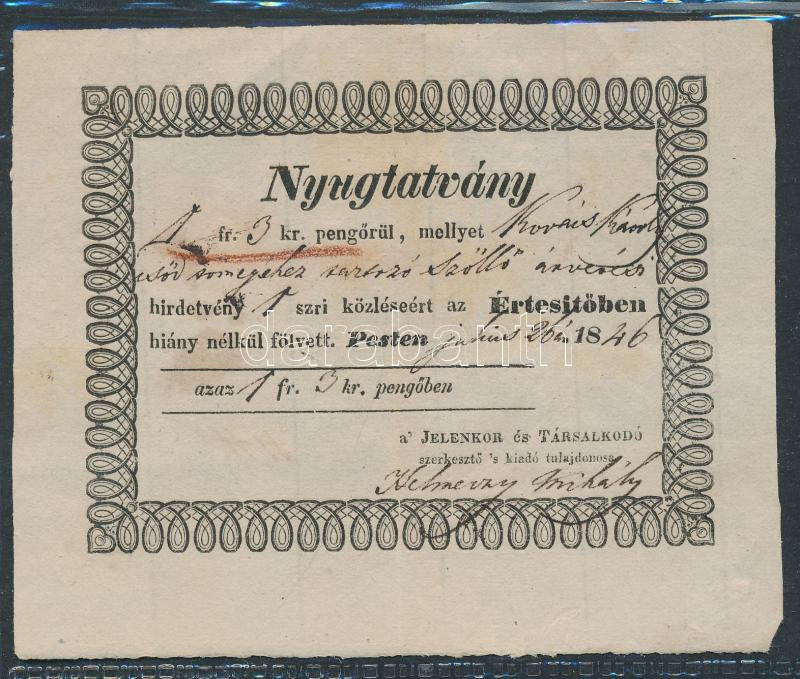 Nyugtatvány
1 fr. 3 kr. pengőrül, mellyet Kovács Károly
csőd tömegéhez tartozó Szőllő árverési
hirdetvény 1 szri közléseért az Értesitőben
hiány nélkül fölvett. Pesten julius 26án 1846
azaz 1 fr. 3 kr. pengőben
a' JELENKOR és TÁRSALKODÓ
szerkesztő 's kiadó tulajdonosa
Helmeczy Mihály
darabanth